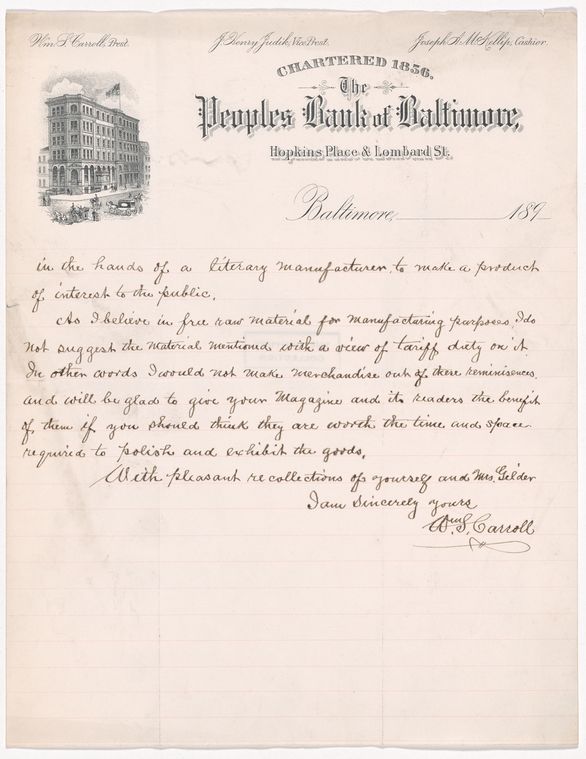 Wm S. Carroll, Prest. J. Henry Judik, Vice Prest. Joseph R. McKellip, Cashier.
CHARTERED 1856.
The
Peoples Bank of Baltimore,
Hopkins Place & Lombard St.
Baltimore, 189
in the hands of a literary manufacturer, to make a product
of interest to the public.
As I believe in free raw material for manufacturing purposes, I do
not suggest the material mentioned with a view of tariff duty on it.
In other words I would not make merchandise out of these reminisences,
and will be glad to give your Magazine and its readers the benefit
of them if you should think they are worth the time and space
required to polish and exhibit the goods.
With pleasant recollections of yourself and Mrs. Gilder
I am Sincerely yours
Wm S. Carroll